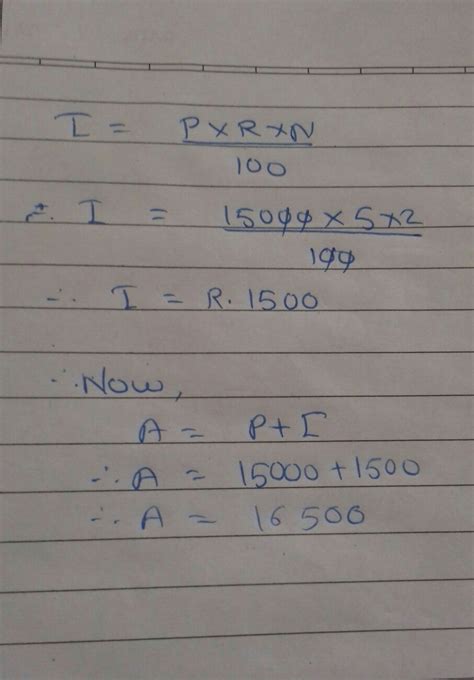 I = P x R x N
100
∴ I = 15000 x 5 x 2
100
∴ I = R. 1500
∴ Now,
A = P + I
∴ A = 15000 + 1500
∴ A = 16 500